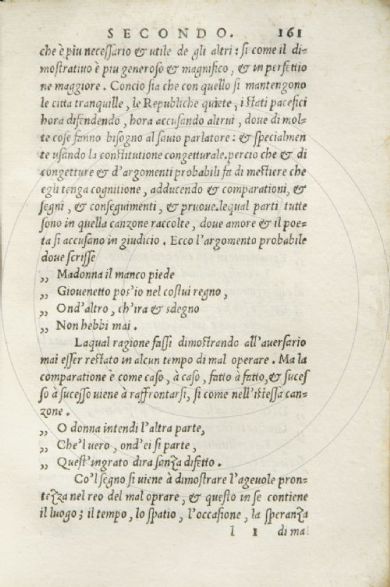 SECONDO. 161
che è piu necessario & utile de gli altri: si come il di-
mostratiuo è piu generoso & magnifico, & in perfettio
ne maggiore. Concio sia che con quello si mantengono
le citta tranquille, le Republiche quiete, i stati pacefici
hora difendendo, hora accusando altrui, doue di mol-
te cose fanno bisogno al sauio parlatore: & specialmen
te usando la constitutione congetturale. percio che & di
congetture & d'argomenti probabili fa di mestiere che
egli tenga cognitione, adducendo & comparationi, &
segni, & conseguimenti, & pruoue. lequal parti tutte
sono in quella canzone raccolte, doue amore & il poe-
ta si accusano in giudicio. Ecco l'argomento probabile
doue scrisse
„ Madonna il manco piede
„ Giouenetto pos'io nel costui regno,
„ Ond'altro, ch'ira & sdegno
„ Non hebbi mai.
Laqual ragione fassi dimostrando all'auersario
mai esser restato in alcun tempo di mal operare. Ma la
comparatione è come caso, à caso, fatto à fatto, & suces
so à sucesso uiene à raffrontarsi, si come nell'istessa can-
zone.
„ O donna intendi l'altra parte,
„ Che'l uero, ond'ei si parte,
„ Quest'ingrato dira sanza difetto.
Co'l segno si uiene à dimostrare l'ageuole pron-
tezza nel reo del mal oprare, & questo in se contiene
il luogo; il tempo, lo spatio, l'occasione, la speranza
l 1 di ma